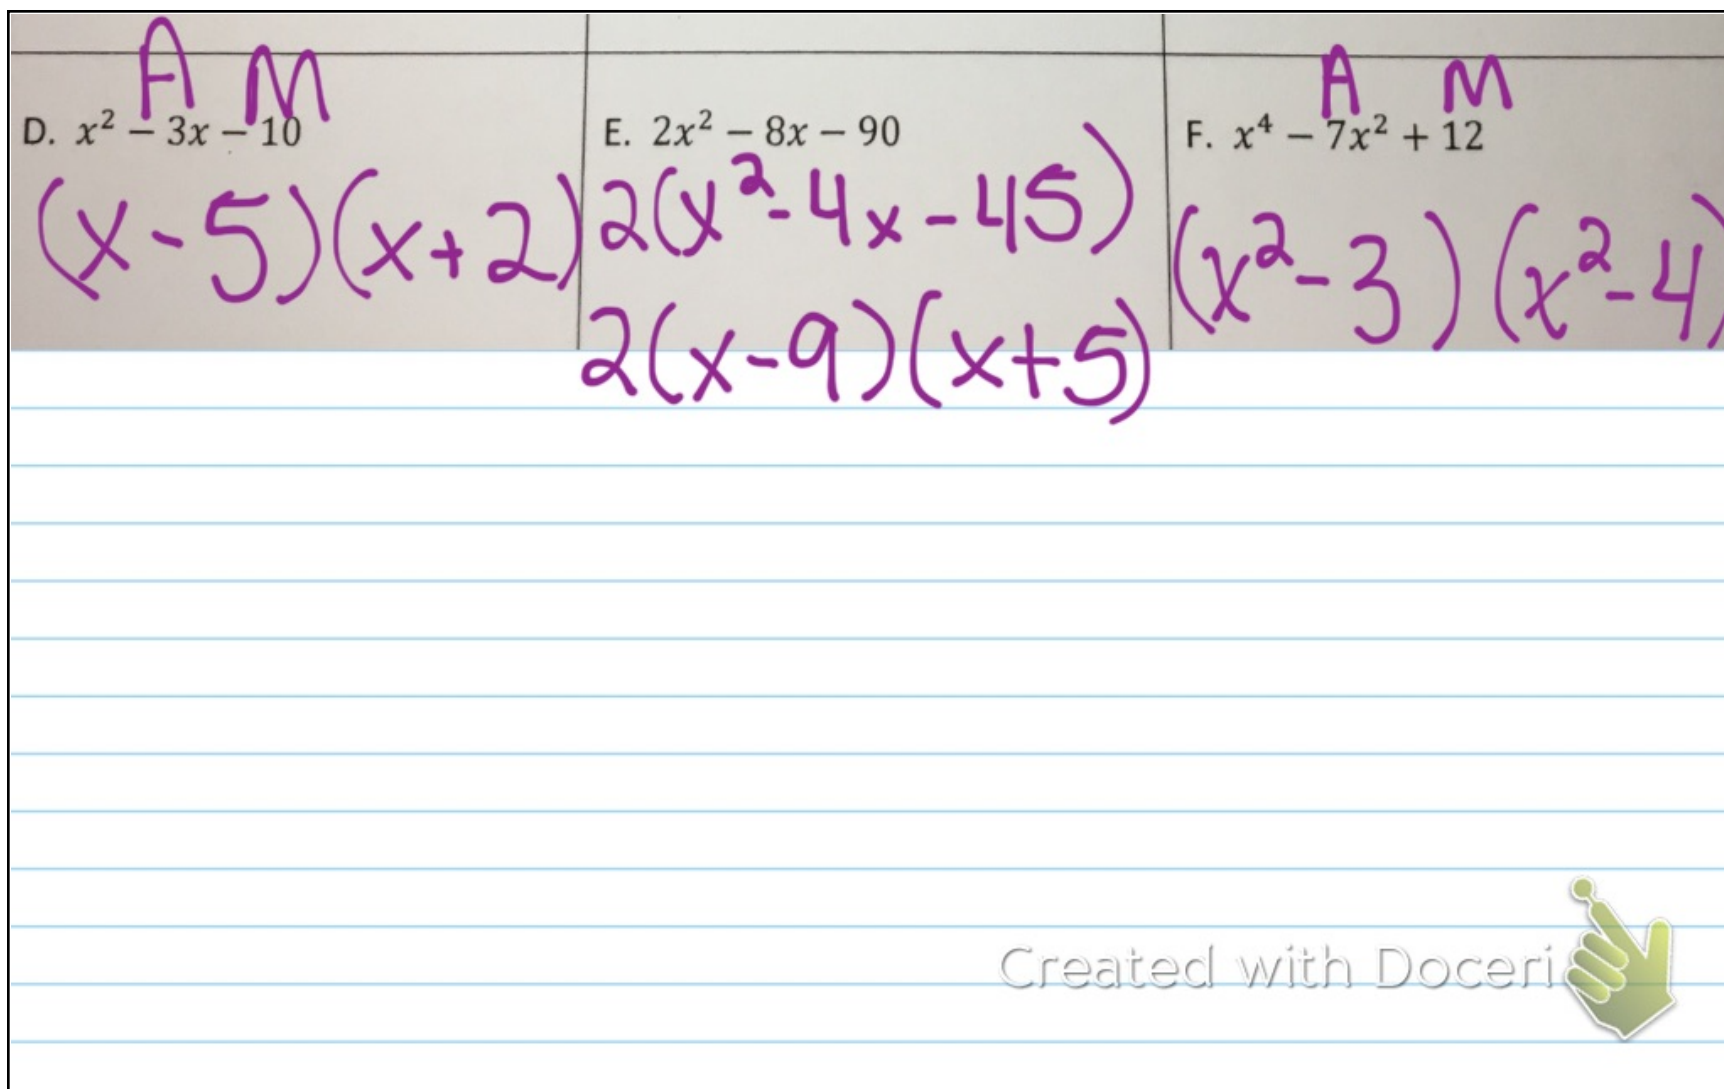 A M
D. x² – 3x – 10
(x-5)(x+2)
E. 2x² – 8x – 90
2(x²-4x-45)
2(x-9)(x+5)
A M
F. x⁴ – 7x² + 12
(x²-3)(x²-4)
Created with Doceri